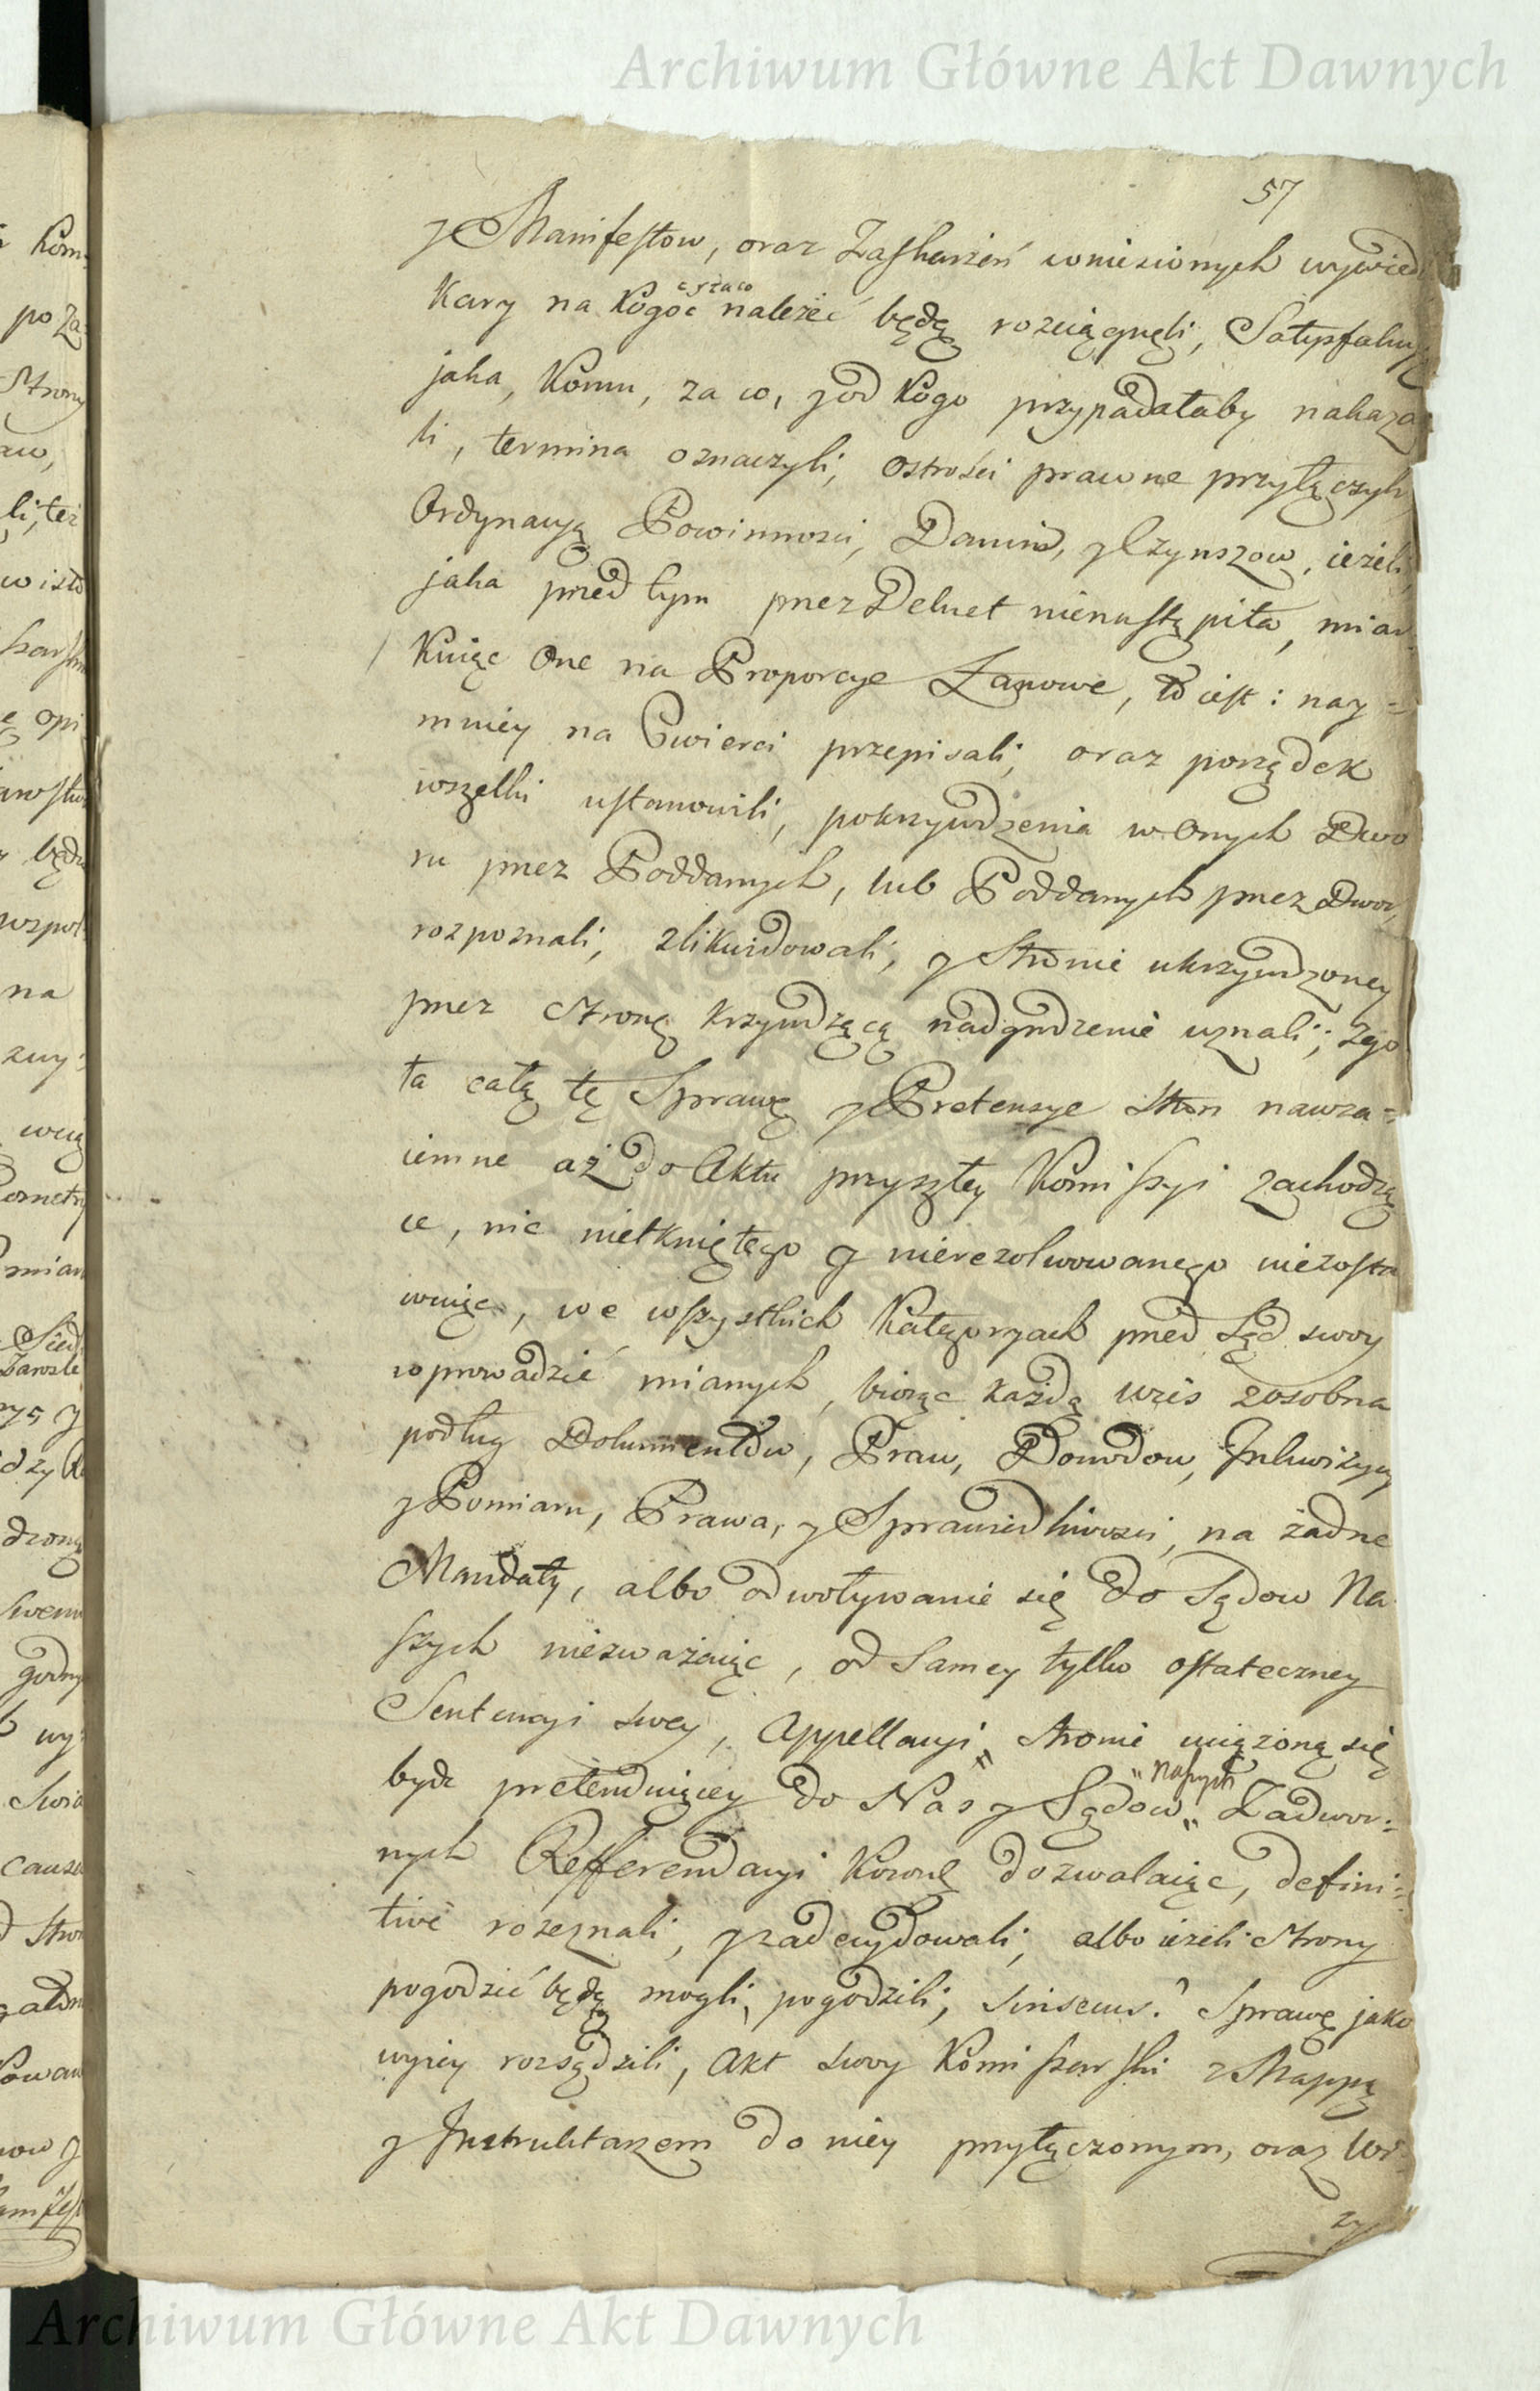 Archiwum Główne Akt Dawnych
57
y Manifestow, oraz Zaskarżeń wniesionych wywied
Kary na kogoć należeć będą rozciągnęli, Satysfakcyą
jaka, Komu, za co, y od kogo przypadałaby nakaza
li, termina oznaczyli, ostrości prawne przyłączyli,
Ordynacyą Powinności, Danin, y Czynszow, ieżeli
jaka przed tym przez Dekret nienastąpiła, miar
Kuiąc One na Proporcye Łanowe, to iest: nay=
mniey na Cwierci przepisali, oraz porządek
wszelki ustanowili, pokrzywdzenia w Onych Dwo
ru przez Poddanych, lub Poddanych przez Dwor,
rozpoznali, zlikwidowali, y Stronie ukrzywdzoney
przez Stronę krzywdzącą nadgrodzenie uznali; zgo
ła całą tę Sprawę y Pretensye Stron nawza=
iemne aż do Aktu przyszłey Kommissyi zachodzą
ce, nic nietkniętego y nierezolwowanego niezosta
wuiąc, we wszystkich Kategoryach przed Sąd swoy
wprowadzić mianych, biorąc każdą wieś zosobna
podług Dokumentow, Praw, Dowodow, Inkwizycyi
y Pomiaru, Prawa, y Sprawiedliwości, na żadne
Mandaty, albo odwoływanie się do Sądow Na
szych nieuważaiąc, od samey tylko ostateczney
Sentencyi swey, Appellacyi Stronie uciążoną się
bydź pretenduiącey do Nas y Sądow "Naszych" Zadwor=
nych Refferendacyi Koronę dozwalaiąc, defini=
tive rozeznali, y zadecydowali, albo ieżeli Strony
pogodzić będą mogli, pogodzili, sinsecus? Sprawę jako
wyżey rozsądzili, Akt swoy Kommissarski z Mappą
y Instruktarzem do niey przyłączonym, oraz
zy
Archiwum Główne Akt Dawnych